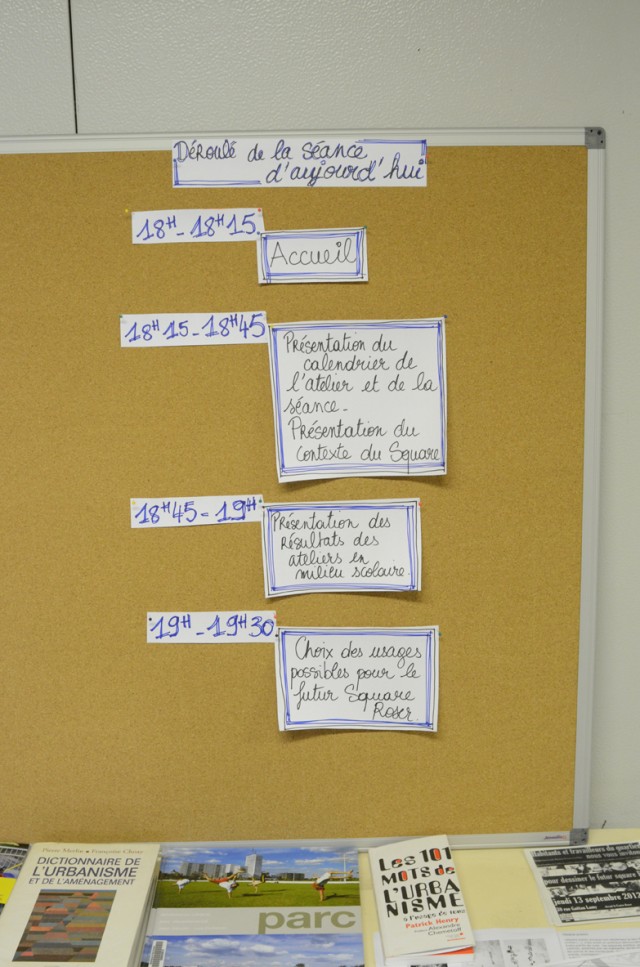 Déroulé de la séance
d'aujourd'hui
18H - 18H15
Accueil
18H15 - 18H45
Présentation du
calendrier de
l'atelier et de la
séance -
Présentation du
contexte du Square
18H45 - 19H
Présentation des
Résultats des
ateliers en
milieu scolaire.
19H - 19H30
Choix des usages
possibles pour le
futur Square
Roser.
Pierre Merlin • Françoise Choay
DICTIONNAIRE DE
L'URBANISME
ET DE L'AMÉNAGEMENT
parc
Les 101
MOTS de
L'URBA
NISME
à l'usage de tous
Patrick Henry
pour dessiner le futur square
jeudi 13 septembre 2012